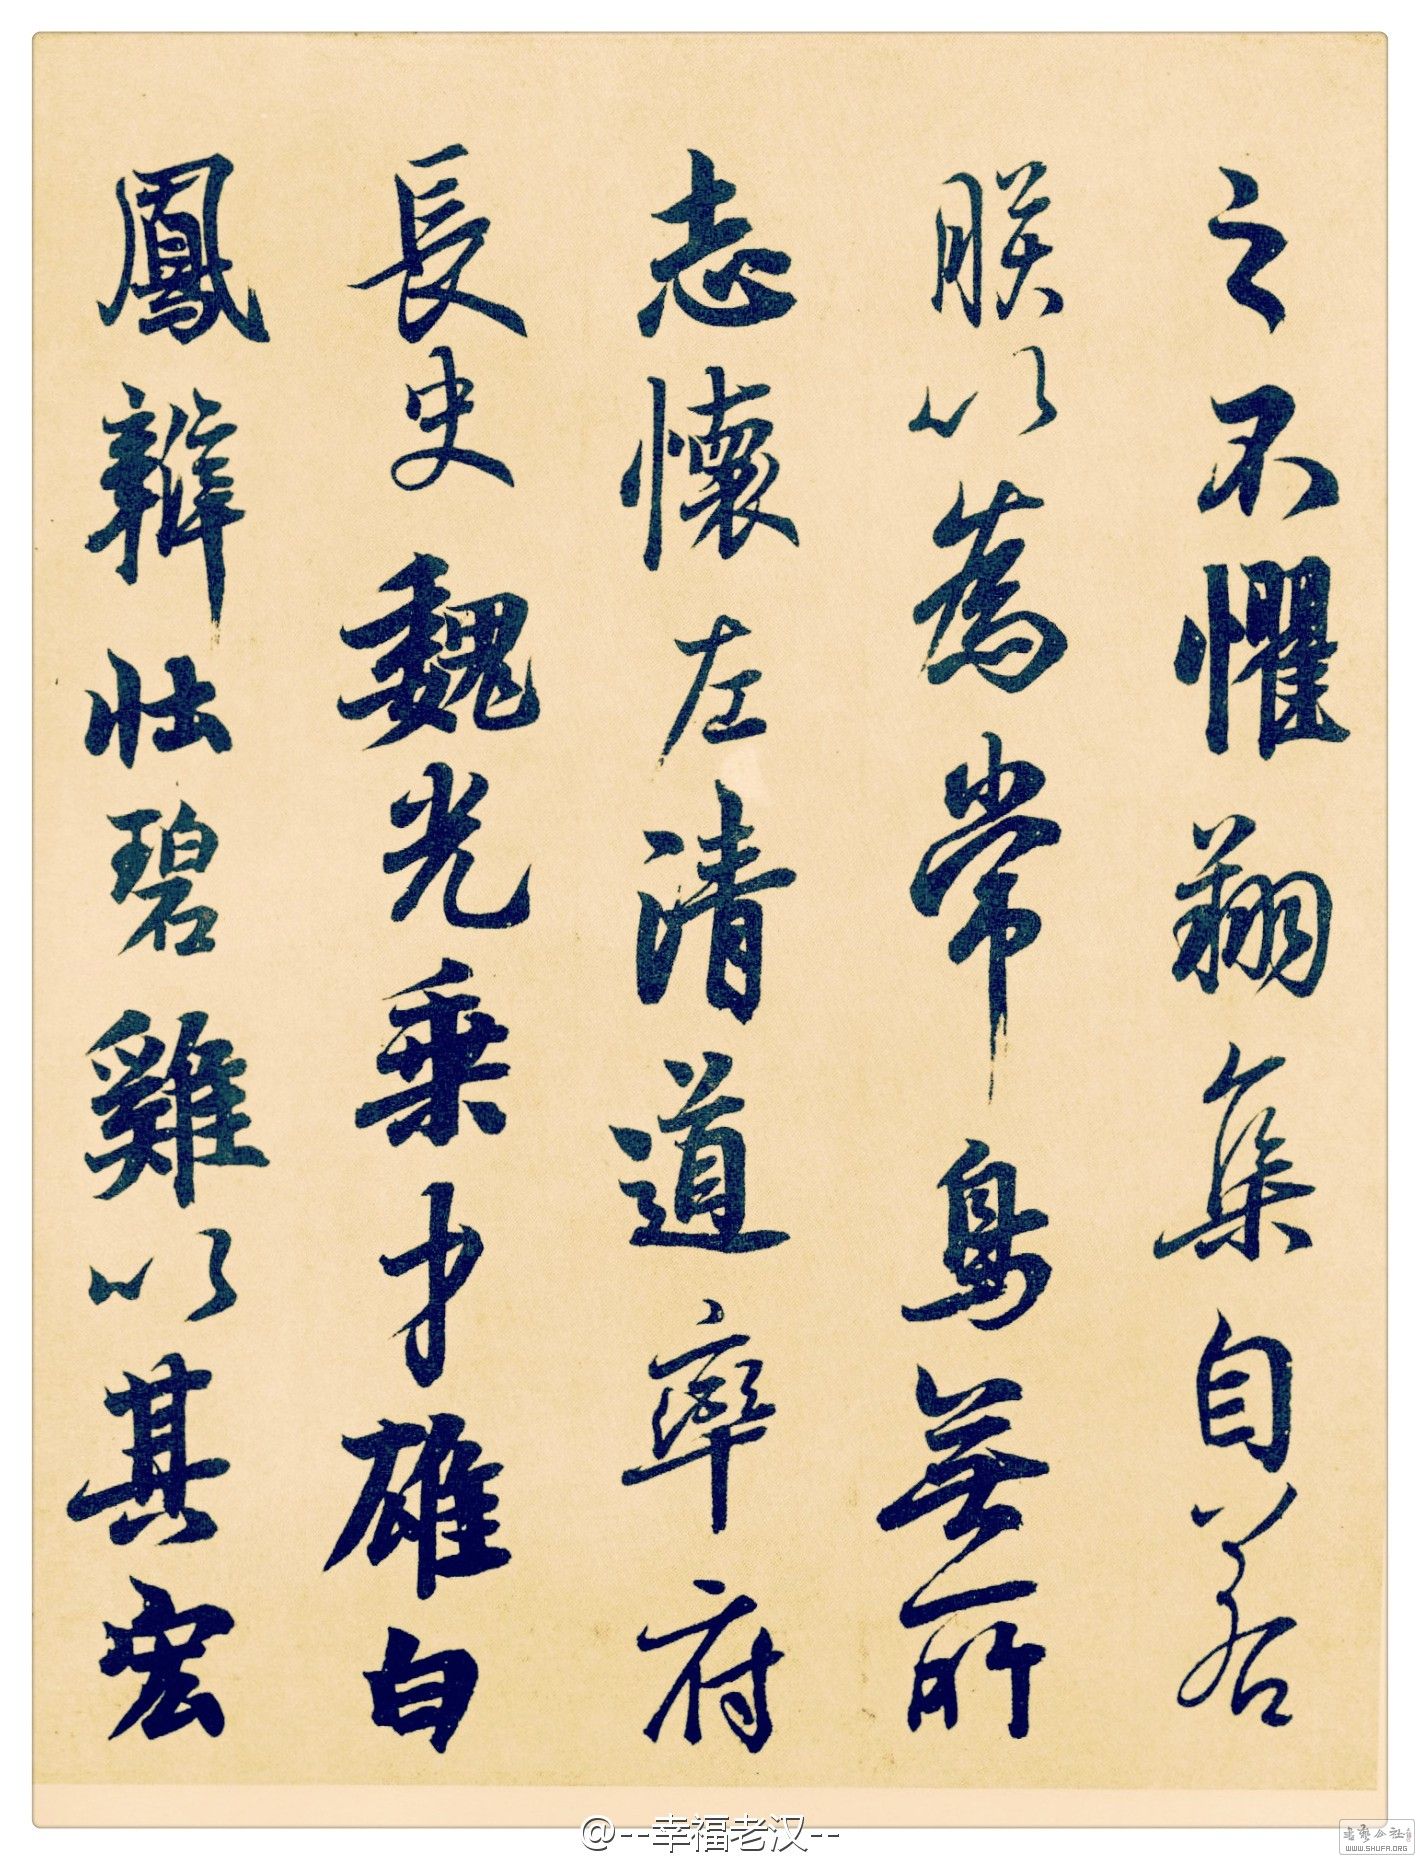 之不懼翔集自若
朕以為常鳥無所
志懷左清道率府
長史魏光乘才雄白
鳳辯壯碧雞以其宏
@--幸福老汉--
书艺公社
WWW.SHUFA.ORG